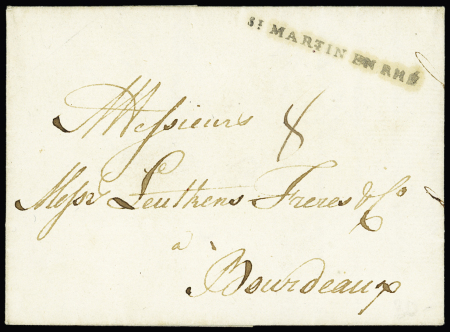 St MARTIN EN RHÉ
Messieurs 8
Messrs Leuthens Freres & Co
a
Bourdeaux